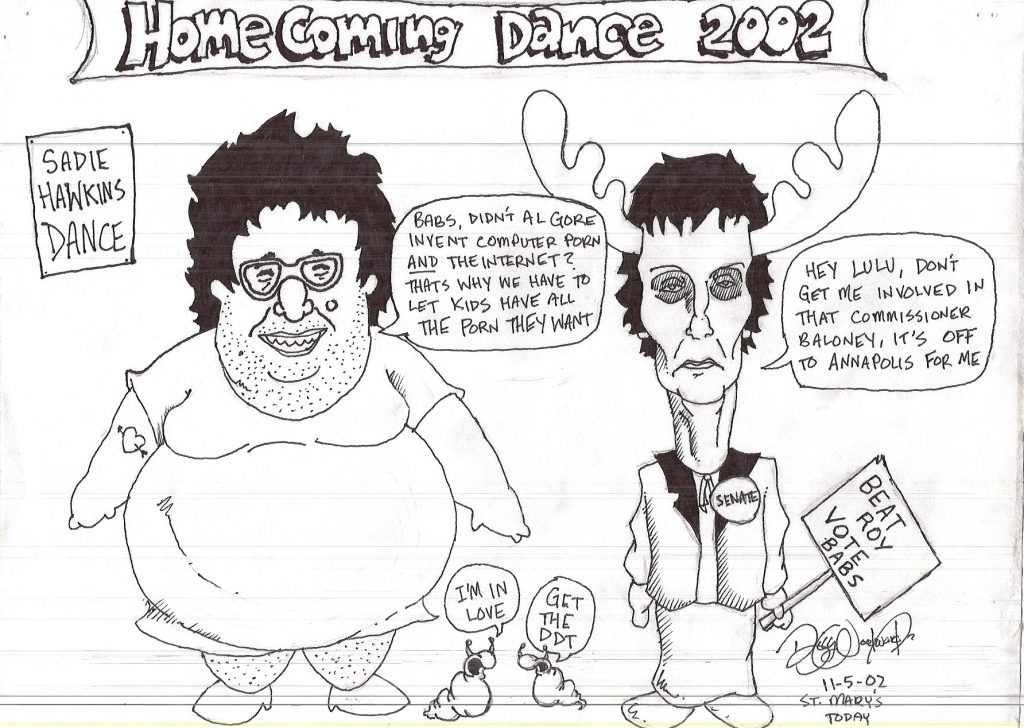 HomeComing Dance 2002
SADIE
HAWKINS
DANCE
BABS, DIDN'T AL GORE
INVENT COMPUTER PORN
AND THE INTERNET?
THATS WHY WE HAVE TO
LET KIDS HAVE ALL
THE PORN THEY WANT
HEY LULU, DON'T
GET ME INVOLVED IN
THAT COMMISSIONER
BALONEY, IT'S OFF
TO ANNAPOLIS FOR ME
SENATE
BEAT
ROY
VOTE
BABS
I'M IN
LOVE
GET
THE
DDT
11-5-02
ST. MARY'S
TODAY